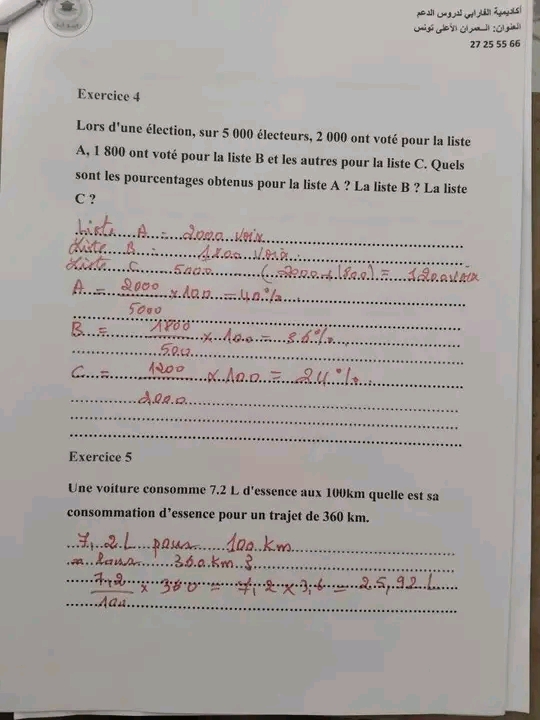 أكاديمية الفارابي لدروس الدعم
العنوان: العمران الأعلى تونس
27 25 55 66
Exercice 4
Lors d'une élection, sur 5 000 électeurs, 2 000 ont voté pour la liste
A, 1 800 ont voté pour la liste B et les autres pour la liste C. Quels
sont les pourcentages obtenus pour la liste A ? La liste B ? La liste
C ?
Liste A = 2000 voix
Liste B = 1800 voix
Liste C 5000 (2000+1800) = 1200 voix
A = 2000/5000 x 100 = 40%
B = 1800/500 x 100 = 36%
C = 1200/2000 x 100 = 24%
Exercice 5
Une voiture consomme 7.2 L d'essence aux 100km quelle est sa
consommation d'essence pour un trajet de 360 km.
7,2L pour 100 km
pour 360 km ?
7,2/100 x 360 = 7,2 x 3,6 = 25,92 L